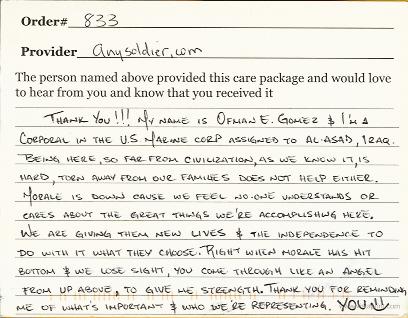 Order# 833
Provider anysoldier.com
The person named above provided this care package and would love
to hear from you and know that you received it
THANK YOU!!! MY NAME IS OFMAN E. GOMEZ & I'M A
CORPORAL IN THE U.S. MARINE CORP ASSIGNED TO AL-ASAD, IRAQ.
BEING HERE, SO FAR FROM CIVILIZATION, AS WE KNOW IT, IS
HARD, TORN AWAY FROM OUR FAMILIES DOES NOT HELP EITHER.
MORALE IS DOWN CAUSE WE FEEL NO-ONE UNDERSTANDS OR
CARES ABOUT THE GREAT THINGS WE'RE ACCOMPLISHING HERE.
WE ARE GIVING THEM NEW LIVES & THE INDEPENDENCE TO
DO WITH IT WHAT THEY CHOOSE. RIGHT WHEN MORALE HAS HIT
BOTTOM & WE LOSE SIGHT, YOU COME THROUGH LIKE AN ANGEL
FROM UP ABOVE, TO GIVE ME STRENGTH. THANK YOU FOR REMINDING
ME OF WHAT'S IMPORTANT & WHO WE'RE REPRESENTING. YOU!!